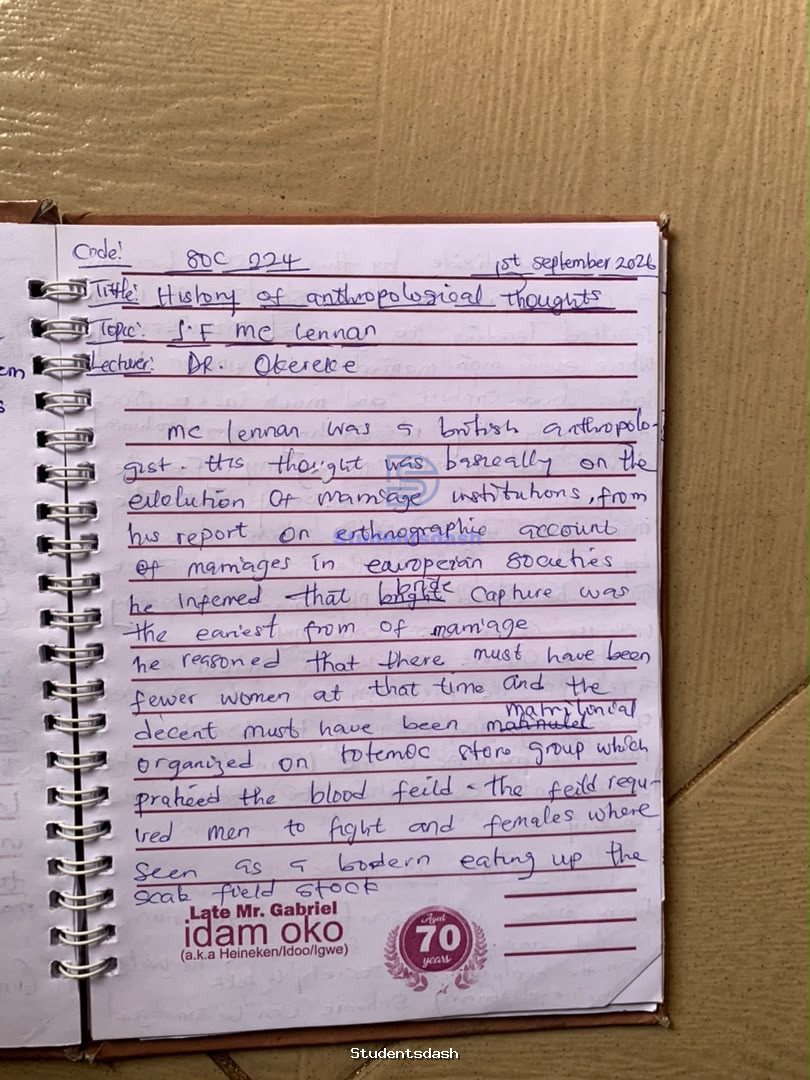 Code: SOC 224 1st September 2026
Title: History of anthropological thoughts
Topic: J.F Mc Lennan
Lecturer: DR. Okereke
em
s
Mc lennan was a british anthropolo-
gist. His thought was basically on the
evolution of marriage institutions, from
his report on erthnographic account
of marriages in europeran societies
he infemed that bride capture was
the eariest from of marriage
he reasoned that there must have been
fewer women at that time and the
decent must have been matrilonial
organized on totemoc store group which
the blood feild - the feild requ-
ired men to fight and females where
seen as a bordern eating up the
field stock
Late Mr. Gabriel
idam oko
(a.k.a Heineken/Idoo/Igwe)
Aged
70
years
Studentsdash
Studentsdash